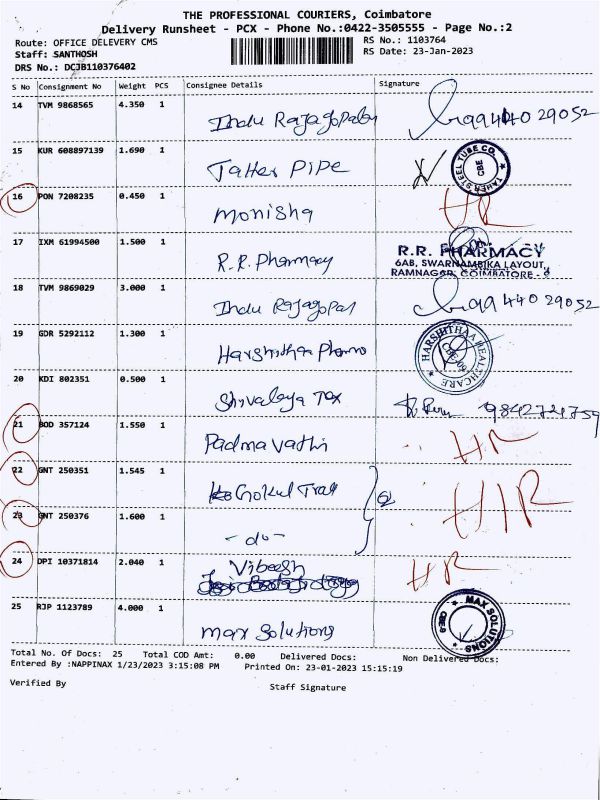 THE PROFESSIONAL COURIERS, Coimbatore
Delivery Runsheet - PCX - Phone No.:0422-3505555 - Page No.:2
Route: OFFICE DELEVERY CMS
RS No.: 1103764
Staff: SANTHOSH
RS Date: 23-Jan-2023
DRS No.: DCJB110376402
S No Consignment No Weight PCS Consignee Details Signature
14 TVM 9868565 4.350 1 Indu Rajagopalan 99440 29052
15 KUR 608897139 1.690 1 Taher PIPE
TAHER STEEL TUBE CO. CBE
16 PON 7208235 0.450 1 Monisha HR
17 IXM 61994500 1.500 1 R.R. Pharmacy
R.R. PHARMACY
6AB, SWARNAMBIKA LAYOUT,
RAMNAGAR, COIMBATORE - 9
18 TVM 9869029 3.000 1 Indu Rajagopal 99440 29052
19 GDR 5292112 1.300 1 Harshithaa Pharma
HARSHITHAA HEALTHCARE CBE-09
20 KDI 802351 0.500 1 Shivalaya Tex 9842724759
21 BOD 357124 1.550 1 Padmavathi HR
22 GNT 250351 1.545 1 Gokul Trad
23 GNT 250376 1.600 1 - do - HR
24 DPI 10371814 2.040 1 Vibeesh HR
25 RJP 1123789 4.000 1 Max Solutions
MAX SOLUTIONS CBE-9
Total No. Of Docs: 25 Total COD Amt: 0.00 Delivered Docs: Non Delivered Docs:
Entered By :NAPPINAX 1/23/2023 3:15:08 PM Printed On: 23-01-2023 15:15:19
Verified By
Staff Signature